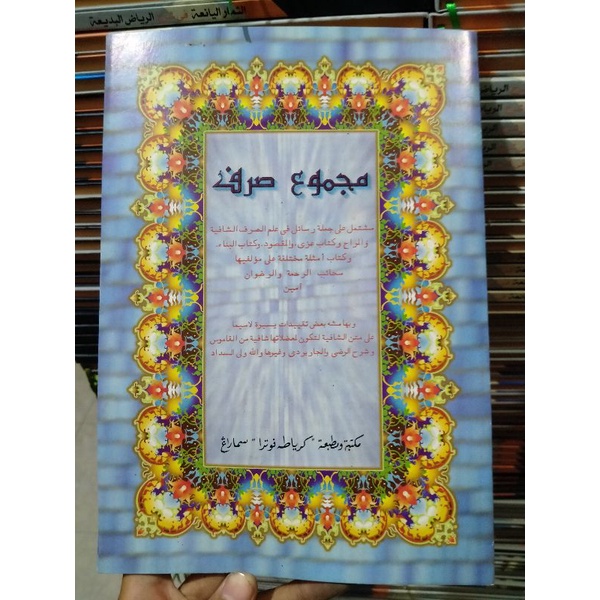 الثمار اليانعة
الرياض البديعة
مجموع صرف
مشتمل على جملة رسائل في علم الصرف الشافية
والمراح وكتاب عزى، والمقصود، وكتاب البناء
وكتاب أمثلة مختلفة على مؤلفيها
سحائب الرحمة والرضوان
آمين
وبهامشه بعض تقييدات يسيرة لاسيما
على متن الشافية لتكون لمعضلاتها شافية من القاموس
وشرح الرضى والجاربردى وغيرها والله ولى السداد
مكتبة ومطبعة "كرياطه فوترا" سماراڠ